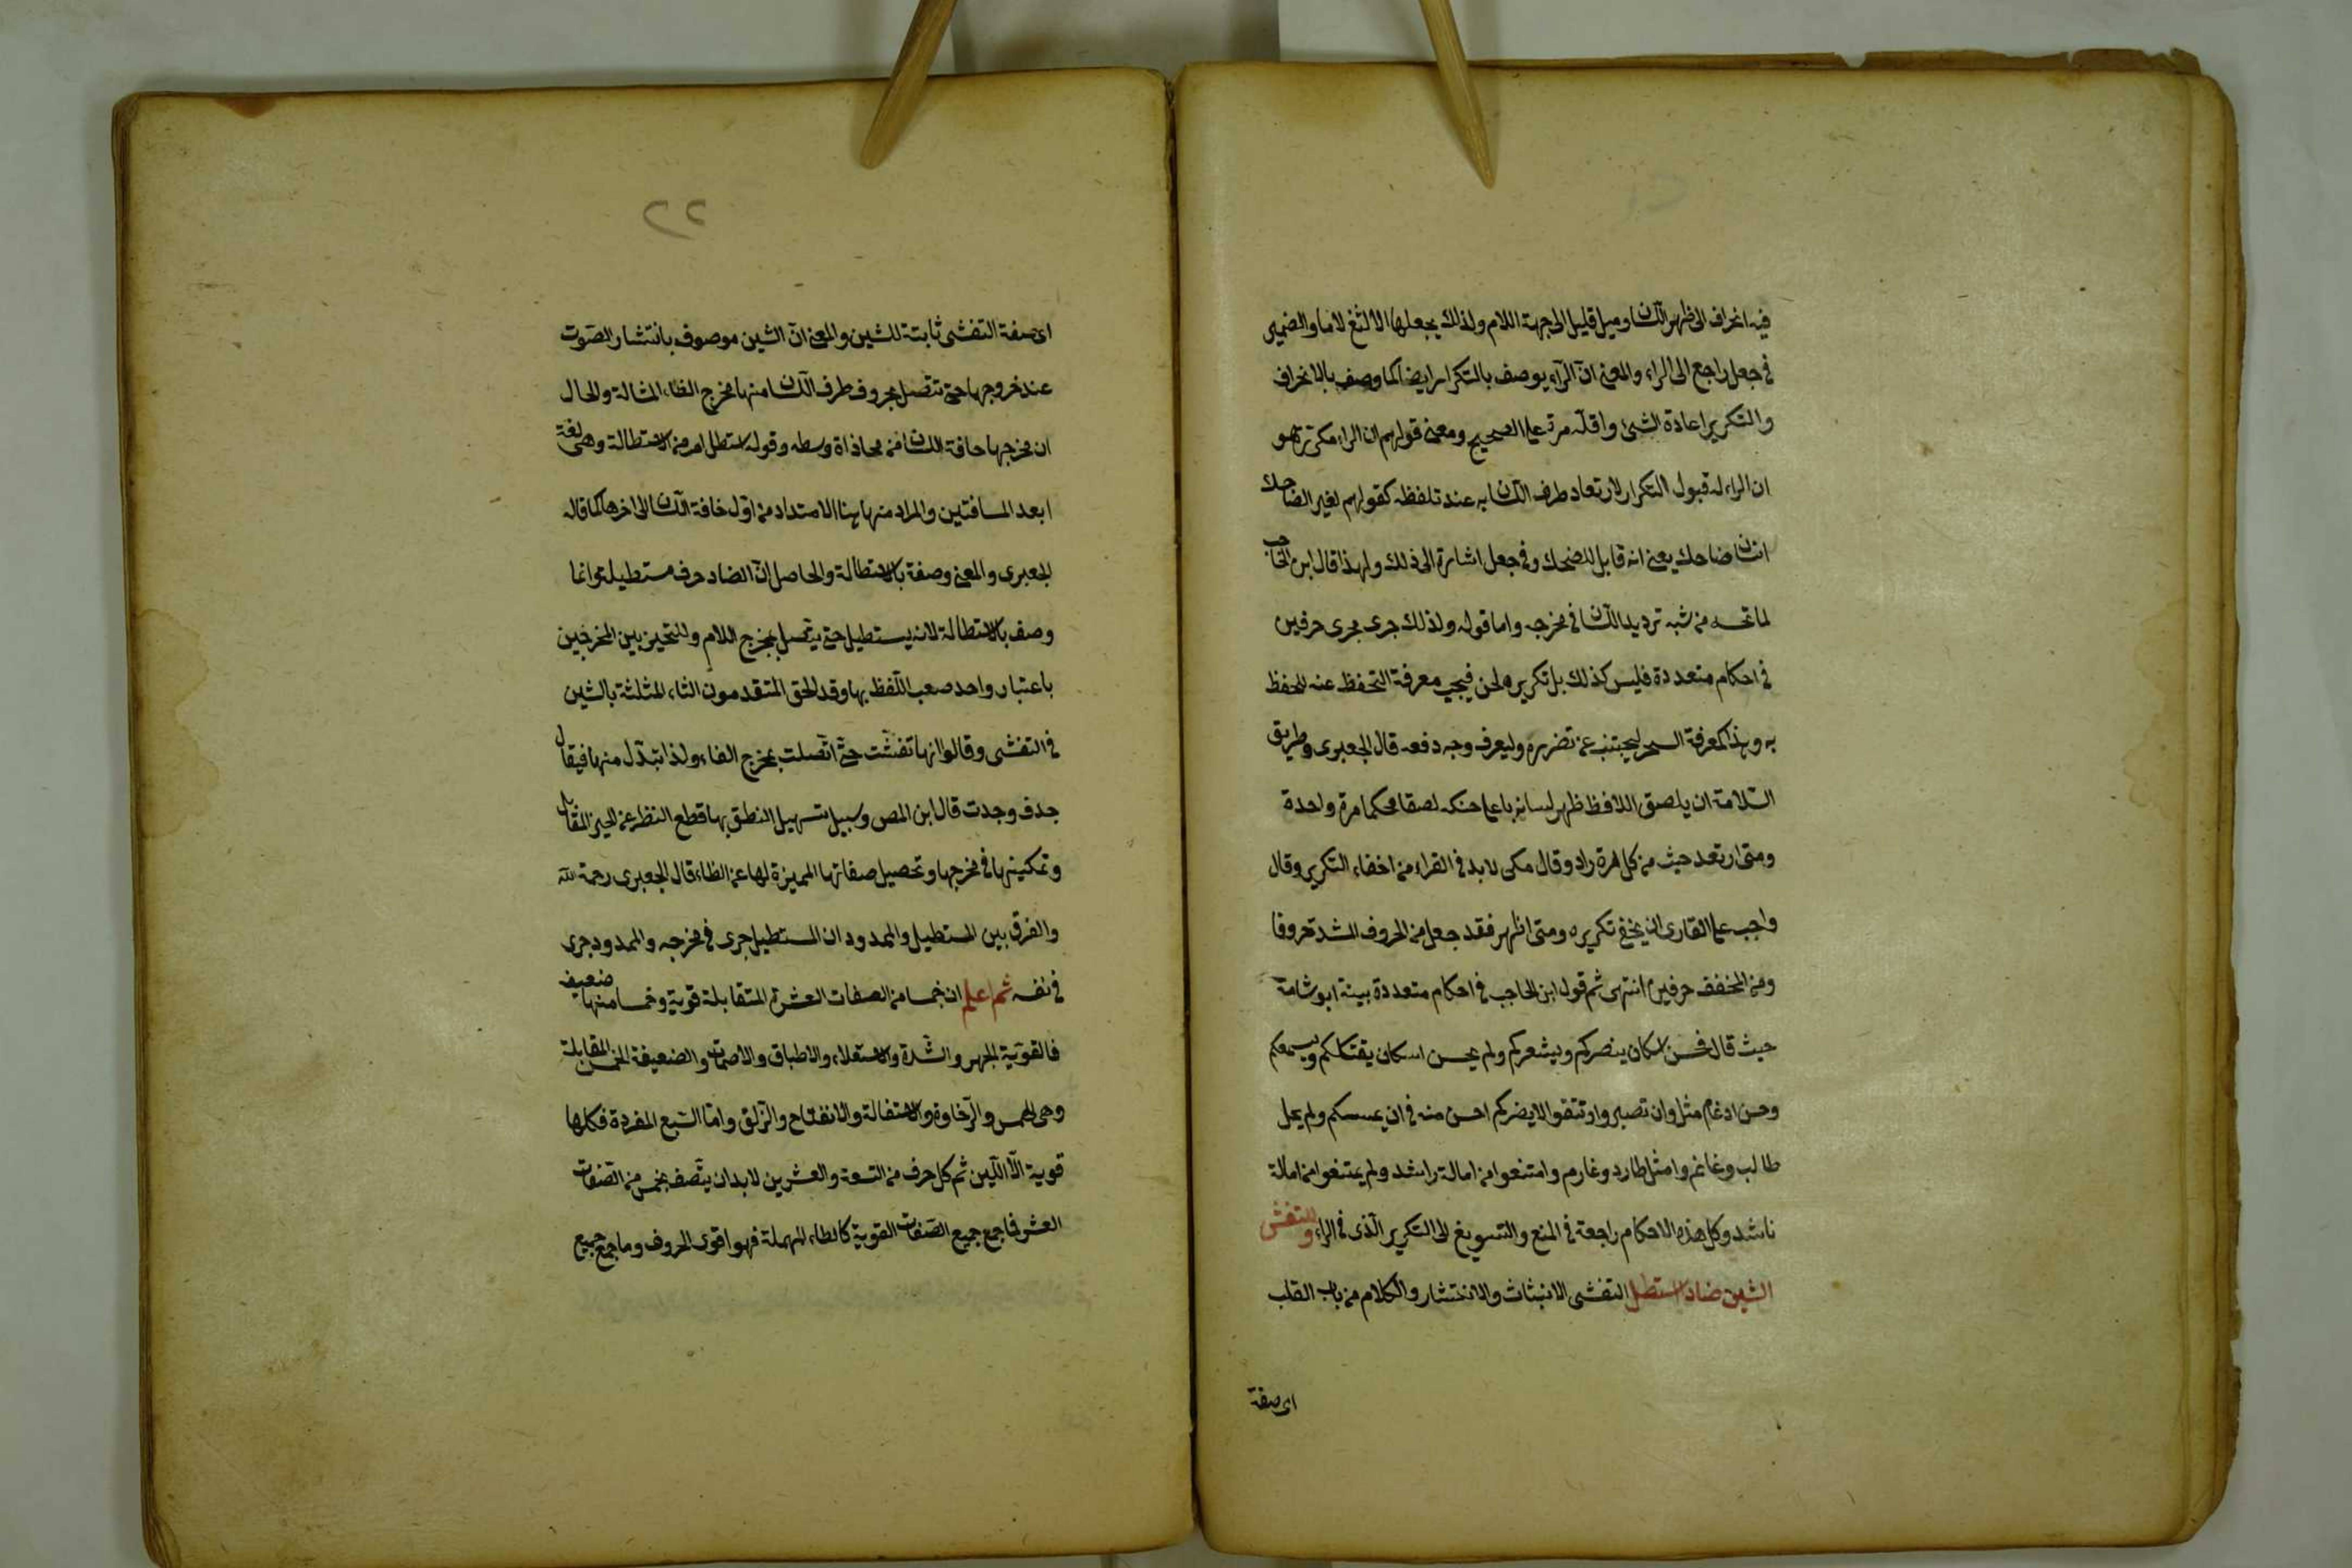 فيه انحراف الى ظهر اللسان وميل قليل الى جهة اللام ولذلك يجعلها الالثغ لاما والضمير
في جعل راجع الى الراء والمعنى انّ الرّاء يوصف بالتكرار ايضا كما وصف بالانحراف
والتكرير اعادة الشئ واقلّه مرة على الصحيح ومعنى قولهم ان الراء مكرّر هو
ان الراء له قبول التكرار لارتعاد طرف اللسان به عند تلفظه كقولهم لغير الضاحك
انسان ضاحك يعنى انه قابل للضحك وفي جعل اشارة الى ذلك ولهذا قال ابن الحاجب
لما تحسه من شبه ترديد اللسان في مخرجه واما قوله ولذلك جرى مجرى حرفين
في احكام متعددة فليس كذلك بل تكريره لحن فيجب معرفة التحفظ عنه للحفظ
به وهذا كمعرفة السحر ليجتنب عن تضرره وليعرف وجه دفعه قال الجعبرى وطريق
السّلامة ان يلصق اللافظ ظهر لسانه باعلى حنكه لصقا محكما مرة واحدة
ومتى ارتعد حيث من كل مرة راد وقال مكى لابد في القراء من اخفاء التكرير وقال
واجب على القارى ان يخفى تكريره ومتى اظهر فقد جعل من الحروف المشددة حروفا
ومن المخفف حرفين انتهى ثم قول ابن الحاجب في احكام متعددة بينة ابو شامة
حيث قال فحسن اسكان ينصركم ويشعركم ولم يحسن اسكان يقتلكم ويسمعكم
وحسن ادغام مثل وان تصبروا وتتقوا لا يضركم احسن منه في ان يمسسكم ولم يمل
طالب وغانم وامثل طارد وغارم وامتنعوا من امالة راشد ولم يمتنعوا من امالة
ناشد وكل هذه الاحكام راجعة في المنع والتسويغ الى التكرير الّذى في الراء وللتفشى
الشين ضادا استطل التفشى الانبثاث والانتشار والكلام من باب القلب
اى صفة
٢٢
اى صفة التفشى ثابتة للشين والمعنى انّ الشين موصوف بانتشار الصّوت
عند خروجها حتى تتصل بحروف طرف اللسان منها مخرج الظاء المشالة والحال
ان مخرجها حافة اللسان من محاذاة وسطه وقوله استطل امر من الاستطالة وهى لغة
ابعد المسافتين والمراد منها هنا الامتداد من اوّل حافة اللسان الى اخرها كما قاله
الجعبرى والمعنى وصفة بالاستطالة والحاصل انّ الضاد حرف مستطيلة وانما
وصف بالاستطالة لانه يستطيل حتى يتّصل بمخرج اللام وللتحيز بين المخرجين
باعتبار واحد صعب اللّفظ بها وقد الحق المتقدمون الثاء المثلثة بالشين
في التفشى وقالوا انها تفشّت حتّى اتّصلت بمخرج الفاء ولذا تبدّل منها فيقال
جدف وجدث قال ابن المص وسبيل تسهيل النطق بها قطع النظر عن الحيز المقابل
وتمكينها في مخرجها وتحصيل صفاتها المميزة لها عن الظاء قال الجعبرى رحمة اللّه
والفرق بين المستطيل والممدود ان المستطيل جرى في مخرجه والممدود جرى
في نفسه ثم اعلم ان خمسا من الصفات العشرة المتقابلة قوية وخمسا منها ضعيف
فالقويّة الجهر والشّدة والاستعلاء والاطباق والاصمات والضعيفة الخمس المقابلة
وهى الهمس والرّخاوة والاستفالة والانفتاح والزّلق وامّا السّبع المفردة فكلها
قوية الّا اللّين ثم كل حرف من التسعة والعشرين لابد ان يتّصف بخمس من الصّفات
العشر فما جمع جميع الصّفات القوية كالطاء المهملة فهو اقوى الحروف وما جمع جميع